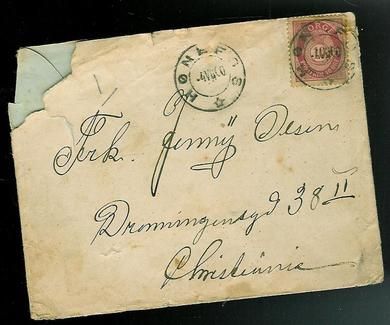 HØNEFOSS
NORGE
HØNEFOSS
Frk. Jenny Olsen
Dronningensgd 38 II
Christiania